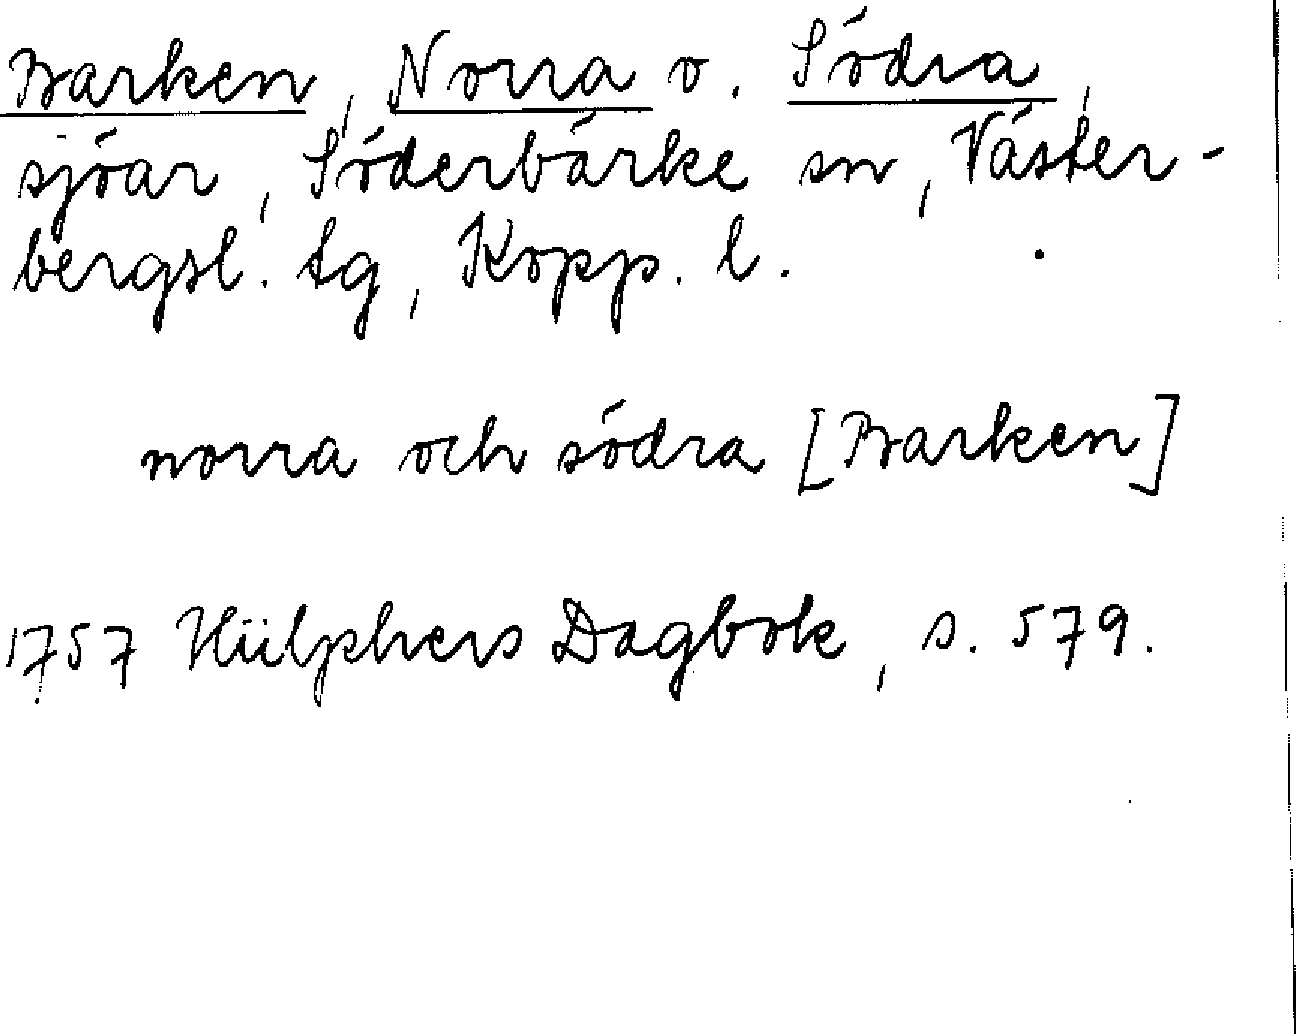 Barken, Norra o. Södra,
sjöar, Söderbärke sn, Väster-
bergsl. tg, Kopp. l.
norra och södra [Barken]
1757 Hülphers Dagbok, s. 579.